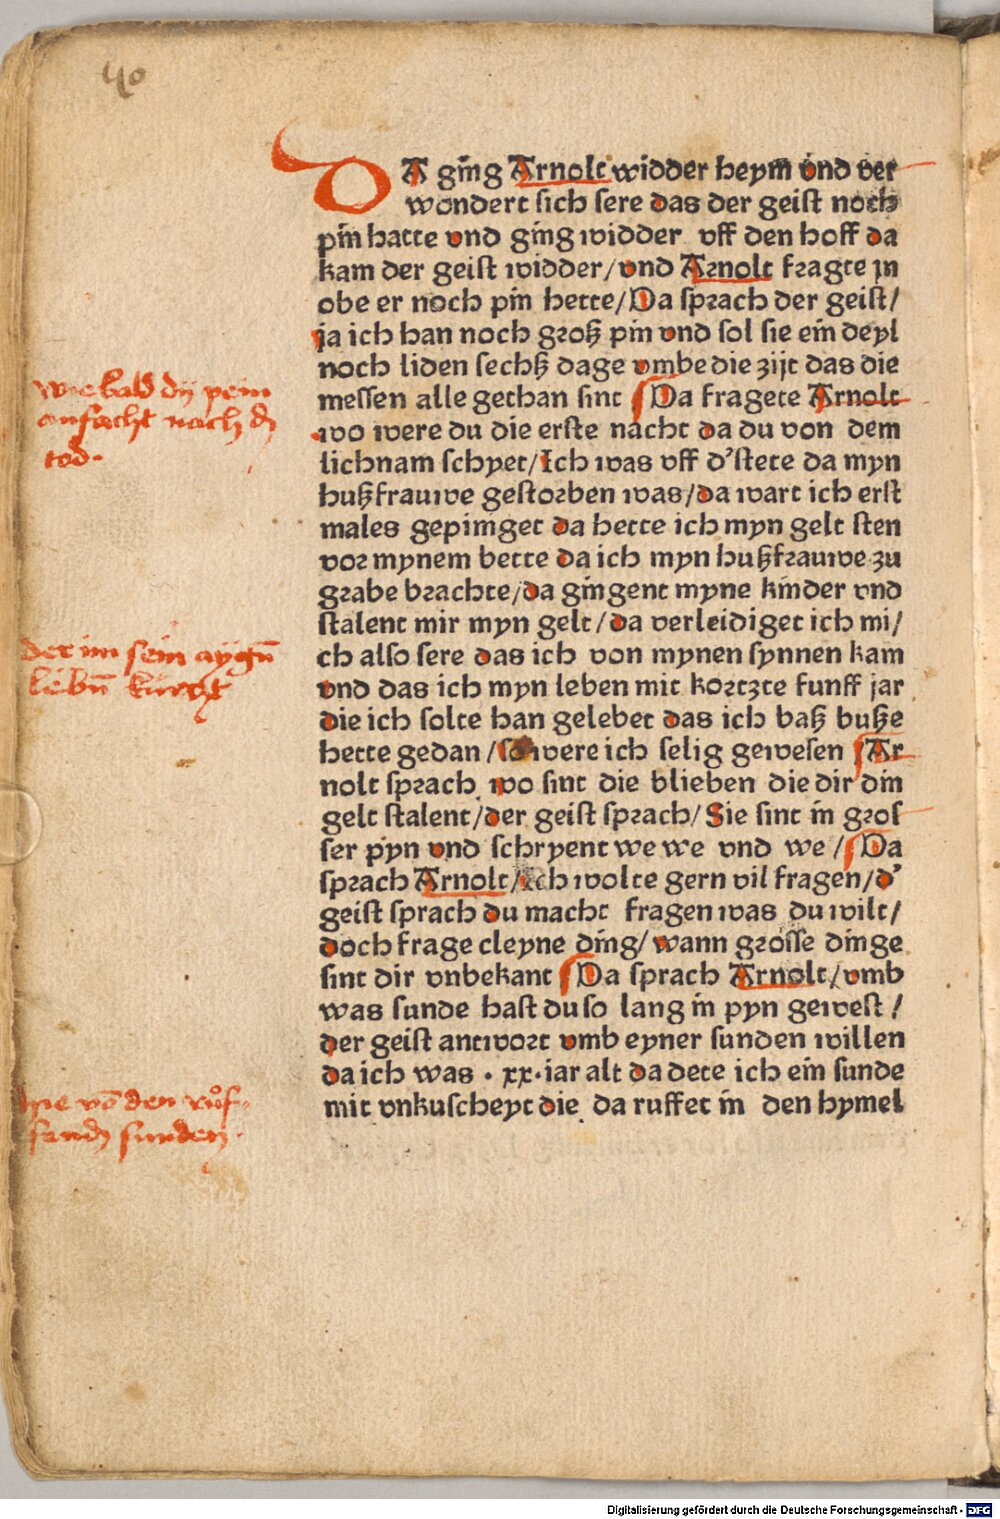 40
DA ging Arnolt widder heym vnd ver
wondert sich sere das der geist noch
pin hatte vnd ging widder vff den hoff da
kam der geist widder/vnd Arnolt fragte jn
obe er noch pin hette/Da sprach der geist/
ja ich han noch groß pin vnd sol sie ein deyl
noch liden sechß dage vmbe die zijt das die
messen alle gethan sint Da fragete Arnolt
wo were du die erste nacht da du von dem
lichnam schyet/Ich was vff d'stete da myn
hußfrauwe gestorben was/da wart ich erst
males gepiniget da hette ich myn gelt sten
vor mynem bette da ich myn hußfrauwe zu
grabe brachte/da gingent myne kinder vnd
stalent mir myn gelt/da verleidiget ich mi/
ch also sere das ich von mynen synnen kam
vnd das ich myn leben mit kortzte funff jar
die ich solte han gelebet das ich baß buße
hette gedan/so were ich selig gewesen Ar
nolt sprach wo sint die blieben die dir din
gelt stalent/der geist sprach/Sie sint in gros
ser pyn vnd schryent we we vnd we/Da
sprach Arnolt/Ich wolte gern vil fragen/d'
geist sprach du macht fragen was du wilt/
doch frage cleyne ding/wann grosse dinge
sint dir vnbekant Da sprach Arnolt/vmb
was sunde hast du so lang in pyn gewest/
der geist antwort vmb eyner sunden willen
da ich was · xx·iar alt da dete ich ein sunde
mit vnkuscheyt die da ruffet in den hymel
wie bald dy pein
anfacht nach d
tod·
der im sein aygn̄
lebn̄ kürczt
hie vō den růf-
sunden
Digitalisierung gefördert durch die Deutsche Forschungsgemeinschaft - DFG